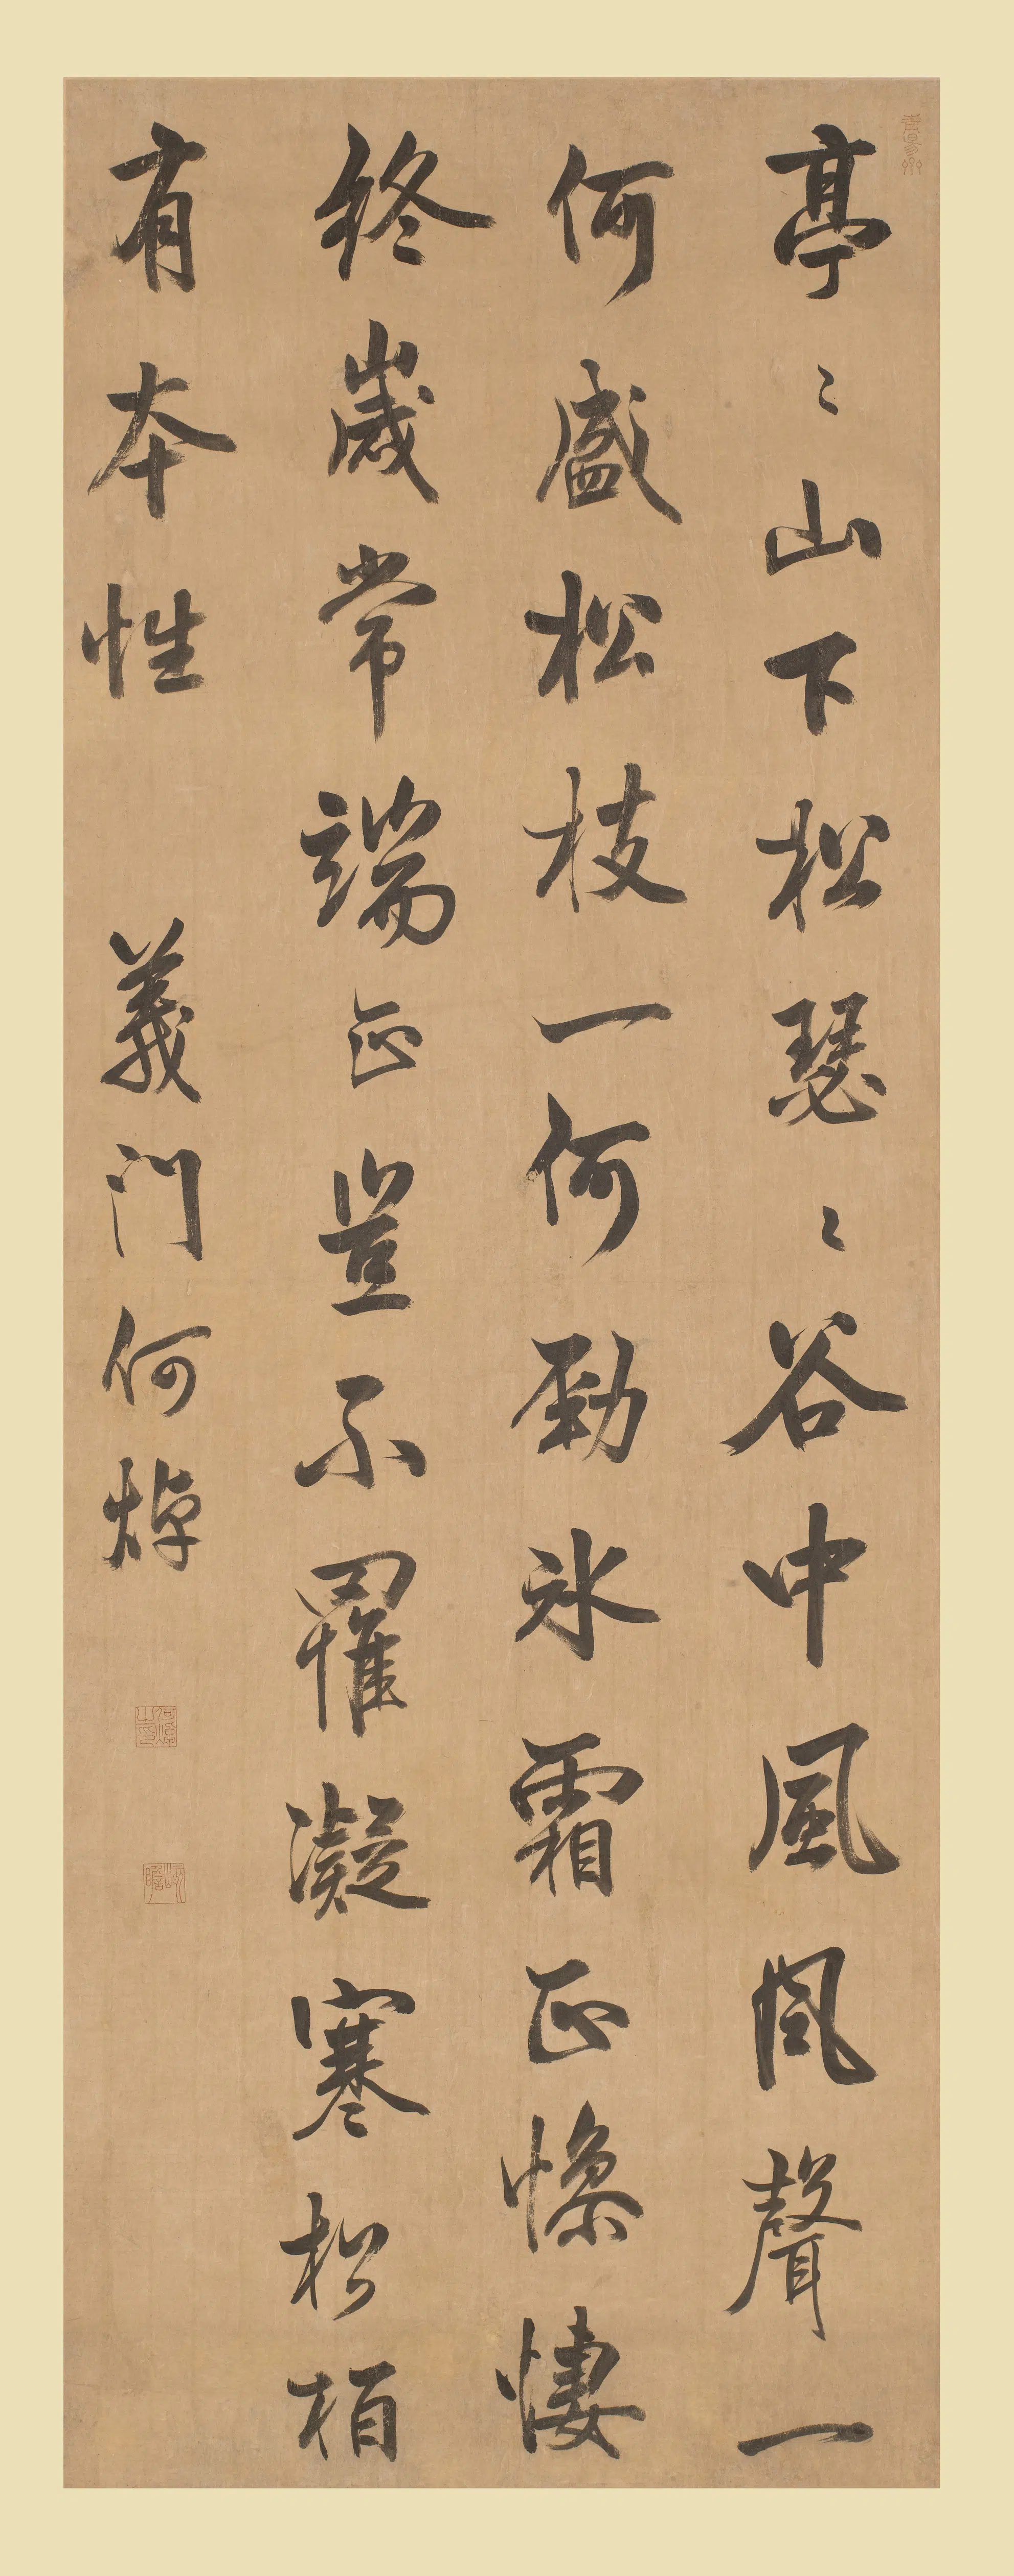 亭〻山下松瑟〻谷中風風聲一
何盛松枝一何勁氷霜正慘悽
終歲常端正豈不罹凝寒松栢
有本性　義門何焯
何焯之印
屺瞻